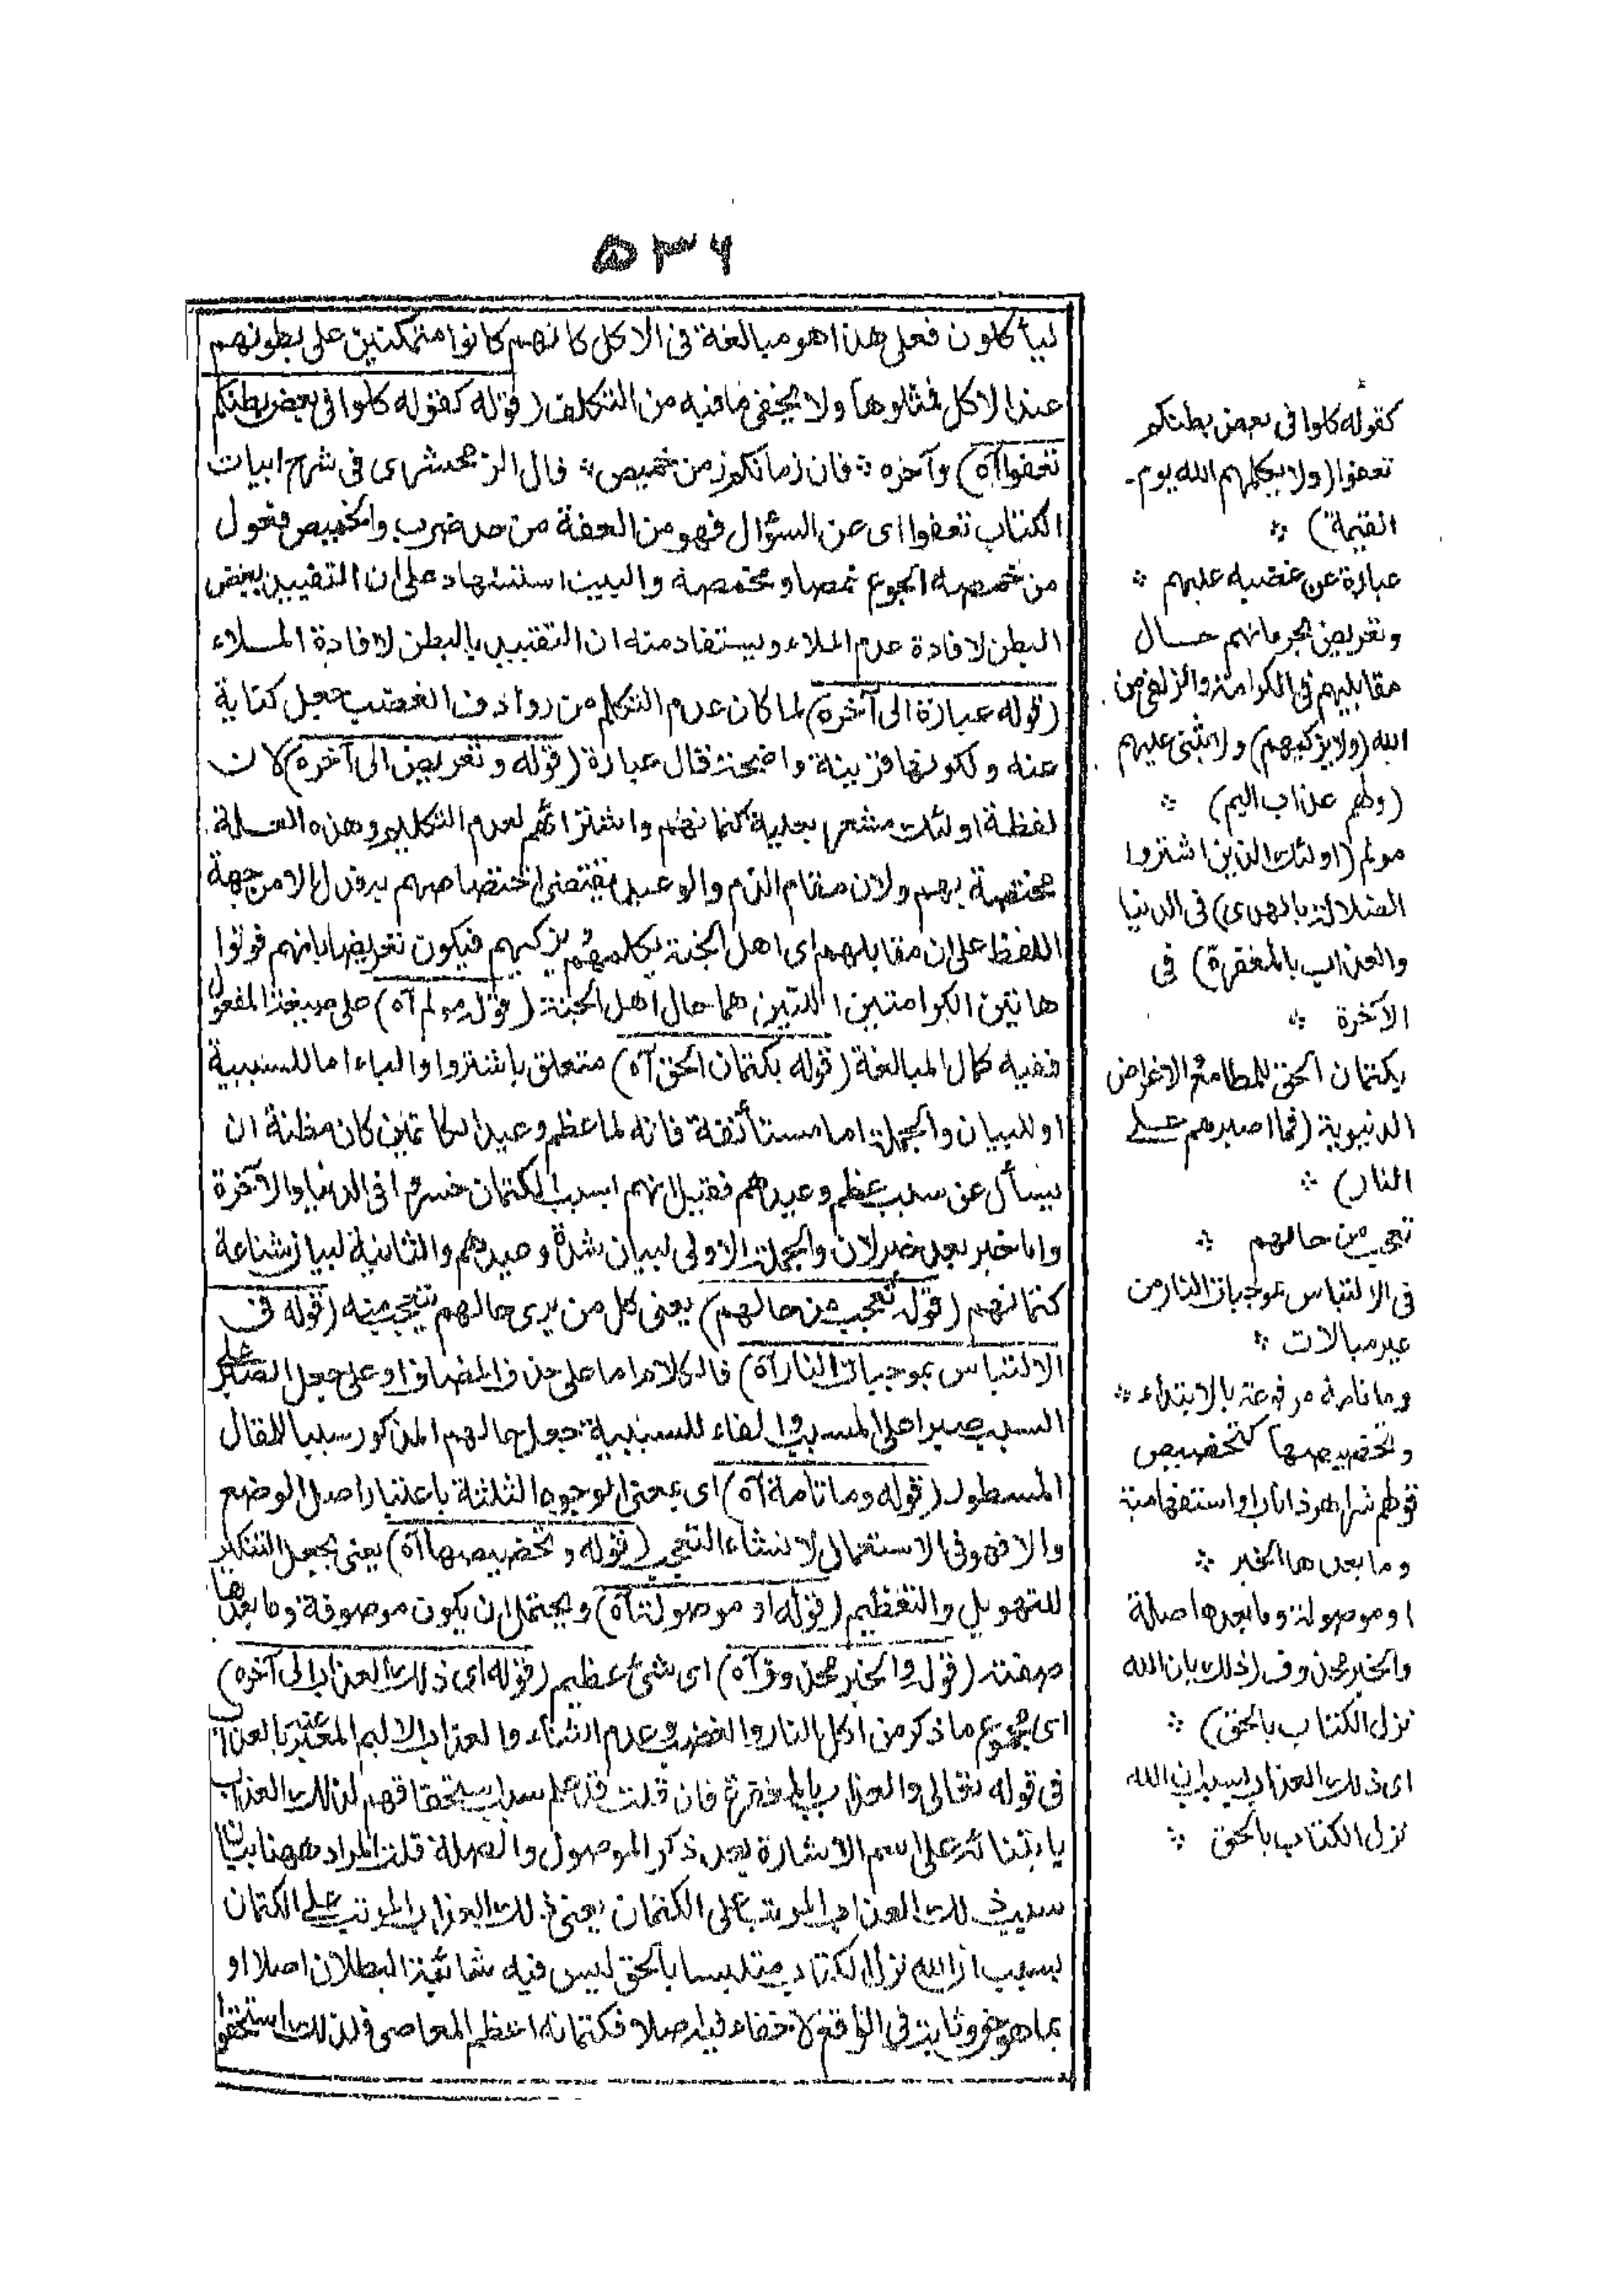 ٥٣٦
ليأكلون فعلى هذا هو مبالغة فى الاكل كانهم كانوا متمكنين على بطونهم
عند الاكل فملؤها ولا يخفى ما فيه من التكلف (قوله كقوله كلوا فى بعض بطنكم
تعفوا آه) وآخره ؞ فان زمانكم زمن خميص ؞ قال الزمخشرى فى شرح ابيات
الكتاب تعفوا اى عن السؤال فهو من العفة من حد ضرب والخميص فعول
من خمصه الجوع خمصا ومخمصة والبيت استشهاد على ان التقييد ببعض
البطن لافادة عدم الملاء ويستفاد منه ان التقييد بالبطن لافادة المــلاء
(قوله عبارة الى آخره) لما كان عدم التكلم من روادف الغضب جعل كناية
عنه ولكونها قرينة واضحة قال عبارة (قوله وتعريض الى آخره) لان
لفظة اولئك مشعر بعلية كتمانهم واشترائهم لعدم التكليم وهذه العــلة
مختصة بهم ولان مقام الذم والوعيد يقتضى اختصاصهم بذلك لا من جهة
اللفظ على ان مقابلهم اى اهل الجنة يكلمهم ويزكيهم فيكون تعريضا بانهم فوتوا
هاتين الكرامتين اللتين هما حال اهل الجنة (قوله مولم آه) على صيغة المفعول
ففيه كمال المبالغة (قوله بكتمان الحق آه) متعلق باشتروا والباء اما للسببية
او للبيان والجملة اما مستأنفة فانه لما عظم وعيد الكاتمين كان مظنة ان
يسأل عن سبب عظم وعيدهم فقيل انهم بسبب الكتمان خسروا فى الدنيا والآخرة
واما خبر بعد خبر لان والجملة الاولى لبيان شدة وعيدهم والثانية لبيان شناعة
كتمانهم (قوله تعجب من حالهم) يعنى كل من يرى حالهم يتعجب منه (قوله فى
الالتباس بموجبات النار آه) فالكلام اما على حذف المضاف او على جعل الصبر على
السبب صبرا على المسبب والفاء للسببية جعل حالهم المذكور سببا للمقال
المسطور (قوله وما تامة آه) اى بمعنى الوجوه الثلثة باعتبار اصل الوضع
والا فهو فى الاستعمال لانشاء التعجب (قوله وتخصيصها آه) يعنى بجعل التنكير
للتهويل والتعظيم (قوله او موصولة آه) ويحتمل ان يكون موصوفة وما بعدها
صفته (قوله والخبر محذوف آه) اى شئ عظيم (قوله اى ذلك العذاب الى آخره)
اى مجموع ما ذكر من اكل النار والغضب وعدم الثناء والعذاب الاليم المعبر عنه بالعذاب
فى قوله تعالى والعذاب بالمغفرة فان قلت قد علم سبب استحقاقهم لذلك العذاب
بابتنائه على اسم الاشارة بعد ذكر الموصول والصلة قلت المراد ههنا بيان
سبب ذلك العذاب المرتب على الكتمان يعنى ذلك العذاب المرتب على الكتمان
بسبب ان الله نزل الكتاب متلبسا بالحق ليس فيه شائبة البطلان اصلا او
بما هو حق وثابت فى الواقع لا خفاء فيه اصلا فكتمانه اعظم المعاصى فلذلك استحقوا
كقوله كلوا فى بعض بطنكم
تعفوا (ولا يكلمهم الله يوم
القيمة) ؞
عبارة عن غضبه عليهم ؞
وتعريض بحرمانهم حــال
مقابليهم فى الكرامة والزلفى من
الله (ولا يزكيهم) ولا يثنى عليهم
(ولهم عذاب اليم) ؞
مولم (اولئك الذين اشتروا
الضلالة بالهدى) فى الدنيا
والعذاب بالمغفرة) فى
الآخرة ؞
بكتمان الحق للمطامع والاغراض
الدنيوية (فما اصبرهم عــلى
النار) ؞
تعجب من حالهم ؞
فى الالتباس بموجبات النار من
غير مبالات ؞
وما تامة مرفوعة بالابتداء ؞
وتخصيصها كتخصيص
قولهم شر اهر ذا ناب او استفهامية
وما بعدها الخبر ؞
او موصولة وما بعدها صلة
والخبر محذوف (ذلك بان الله
نزل الكتاب بالحق) ؞
اى ذلك العذاب بسبب ان الله
نزل الكتاب بالحق ؞